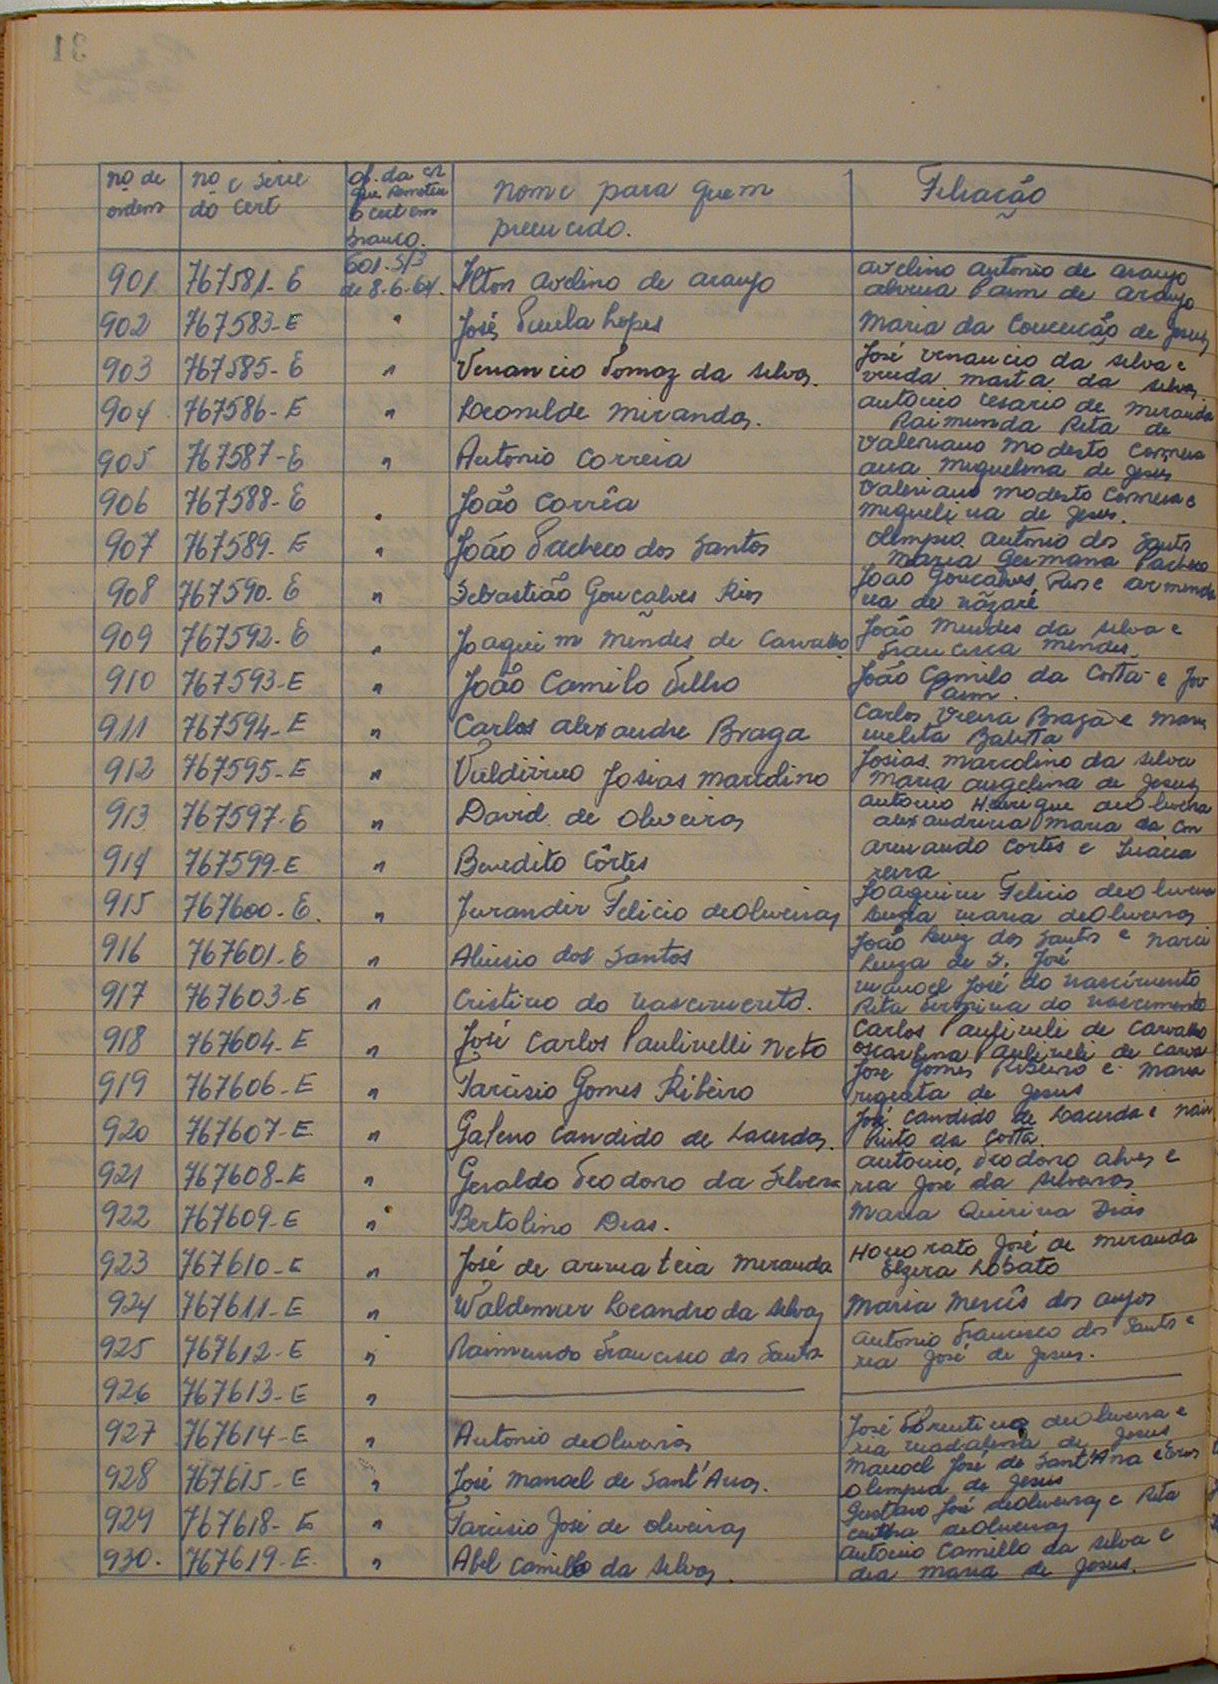 no de ordem
no e serie do cert
of. da CR que remeteu o cert em branco.
nome para quem preencido.
Filiação
901 767581-E 601.S/3 de 8-6-64. Ilton Avelino de Araujo
avelino antonio de araujo
Paim de araujo
902 767583-E " José Paula Lopes
Maria da Conceição de Jesus
903 767585-E " Venancio Tomaz da Silva.
José Venancio da Silva e
marta da Silva
904 767586-E " Leonilde Miranda.
antonio Cesario de Miranda
Raimunda Rita de
905 767587-E " Antonio Correia
Valeriano Modesto Correia
ana Miguelina de Jesus
906 767588-E " João Corrêa
Valeriano Modesto Correia e
Miguelina de Jesus.
907 767589-E " João Pacheco dos Santos
Olimpio antonio dos Santos
Maria Germana Pacheco
908 767590-E " Sebastião Gonçalves Rios
João Gonçalves Rios e
de Nazaré
909 767592-E " Joaquim Mendes de Carvalho
João Mendes da Silva e
Francisca Mendes.
910 767593-E " João Camilo Filho
João Camilo da Costa e
Paim.
911 767594-E " Carlos Alexandre Braga
Carlos Vieira Braga e Maria
Batista
912 767595-E " Valdivino Josias Marcolino
Josias Marcolino da Silva
Maria Angelina de Jesus
913 767597-E " David de Oliveira
antonio Henrique de Oliveira
alexandrina Maria da
914 767599-E " Benedito Côrtes
armando Cortes e
915 767600-E. " Jurandir Felicio de Oliveira
Joaquim Felicio de Oliveira
Luzia maria de Oliveira
916 767601-E " Aluisio dos Santos
João dos Santos e
Luiza de S. José
917 767603-E " Cristino do Nascimento.
manoel José do Nascimento
Rita do Nascimento
918 767604-E " José Carlos Paulinelli Neto
Carlos Paulineli de Carvalho
Oscarlina Paulineli de
919 767606-E " Tarcisio Gomes Ribeiro
José Gomes Ribeiro e Maria
de Jesus
920 767607-E " Galeno Candido de Lacerda.
José Candido de Lacerda e
Pinto da Costa.
921 767608-E " Geraldo Teodoro da Silveira
antonio Teodoro alves e
José da Silveira
922 767609-E " Bertolino Dias.
Maria Quirina Dias
923 767610-E " José de Arimateia Miranda
Honorato José de Miranda
Elzira Lobato
924 767611-E " Waldemar Leandro da Silva
Maria Mercês dos Anjos
925 767612-E " Raimundo Francisco dos Santos
Antonio Francisco dos Santos e
ria José de Jesus.
926 767613-E "
927 767614-E " Antonio de Oliveira
José de Oliveira e
ria madalena de Jesus
928 767615-E " José Manoel de Sant'Ana.
Manoel José de Sant'Ana e
Olimpia de Jesus
929 767618-E " Tarcisio José de Oliveira
Gustavo José de Oliveira e Rita
de Oliveira
930. 767619-E. " Abel Camillo da Silva.
Antonio Camillo da Silva e
dia maria de Jesus.